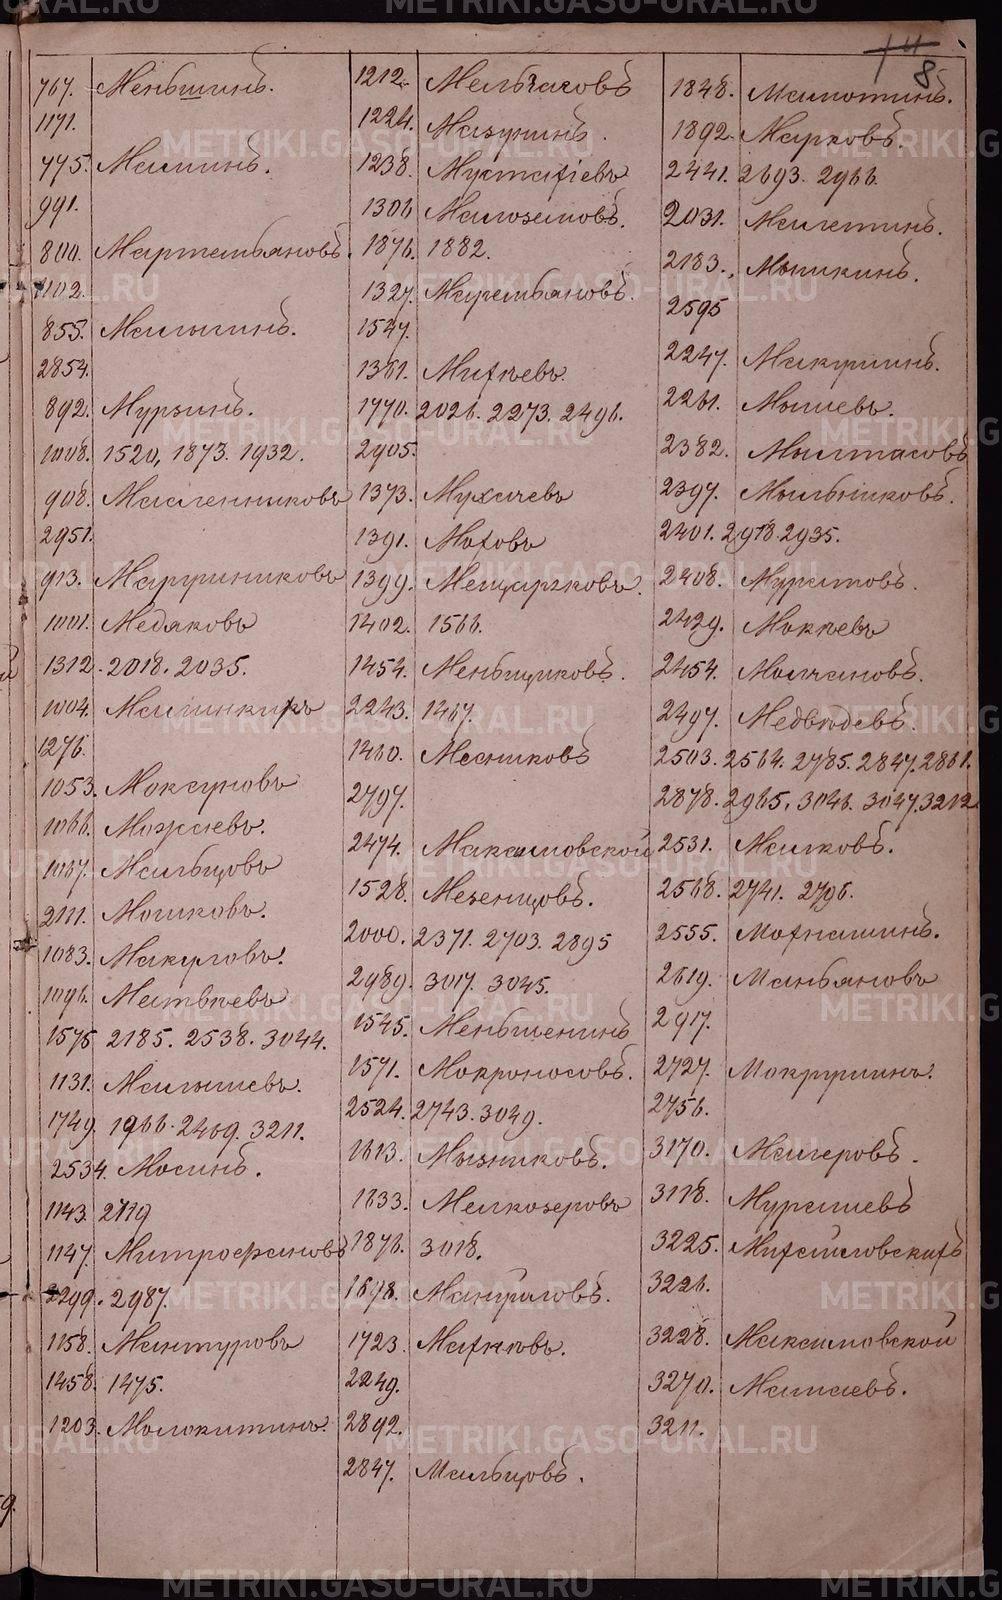 8
767. Меньшинъ.
1171.
775. Маминъ.
991.
800. Мартемьяновъ.
1102.
855. Малыгинъ.
2854.
892. Мурзинъ.
1008. 1520, 1873. 1932.
908. Масленниковъ
2951.
913. Марушниковъ
1001. Медяковъ
1312. 2018. 2035.
1004. Малинкихъ
1276.
1053. Моксуновъ
1066. Можаевъ.
1067. Мальцовъ
2111. Мошковъ.
1083. Макуловъ.
1096. Матвѣевъ
1575 2185. 2538. 3044.
1131. Малышевъ.
1749. 1966. 2469. 3211.
2534. Мосинъ.
1143. 2719
1147. Митрофановъ
2299. 2987.
1158. Мантуровъ
1458. 1475.
1203. Молокитинъ.
1212. Мельчаковъ
1224. Мазунинъ.
1238. Мустафіевъ
1306 Малоземовъ.
1876. 1882.
1327. Маремьяновъ.
1547.
1361. Михѣевъ.
1770. 2026. 2273. 2496.
2905.
1373. Мухачевъ
1391. Моховъ
1399. Мещаряковъ.
1402. 1566.
1454. Меньщиковъ.
2243. 1467.
1460. Месниковъ
2797.
2474. Максимовской
1528. Мезенцовъ.
2000. 2371. 2703. 2895
2989. 3017. 3045.
1545. Меньшенинъ
1571. Мокроносовъ.
2524. 2743. 3049.
1613. Мызниковъ.
1633. Мелкозеровъ
1876. 3018.
1698. Мануиловъ.
1723. Махневъ.
2249.
2892.
2847. Мальцовъ.
1848. Мамотинъ.
1892. Марковъ.
2441. 2693. 2966.
2031. Милетинъ.
2183. Мышкинъ.
2595
2247. Макушинъ.
2261. Мышевъ.
2382. Мылтасовъ
2397. Мыльниковъ.
2401. 2918. 2935.
2408. Муратовъ.
2429. Мокѣевъ
2454. Молчановъ.
2497. Медвѣдевъ.
2503. 2564. 2785. 2847. 2861.
2878. 2965. 3046. 3047. 3212
2531. Малковъ.
2568. 2741. 2796.
2555. Мохнашинъ.
2619. Маньяновъ
2917.
2727. Мокрушинъ.
2756.
3170. Магеровъ.
3178. Муралиевъ
3225. Михайловскихъ
3226.
3228. Максимовской
3270. Мамаевъ.
3211.
METRIKI.GASO-URAL.RU